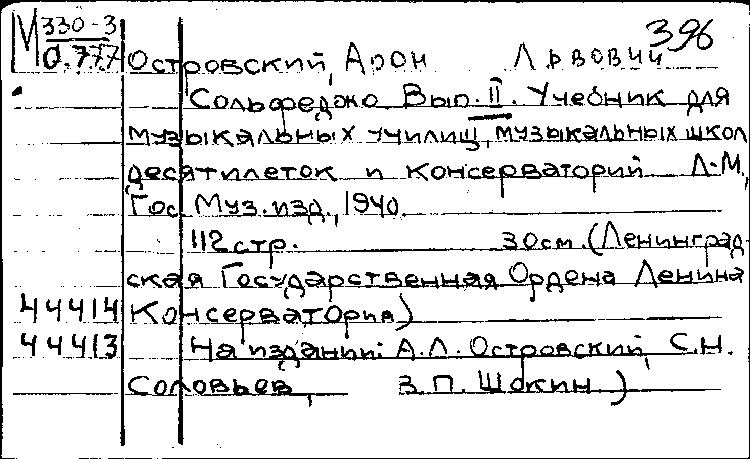 М 330-3 396
О.777 Островский, Арон Львович
Сольфеджо Вып. II. Учебник для
музыкальных училищ, музыкальных школ
десятилеток и консерваторий Л-М,
Гос. Муз. изд., 1940.
112 стр. 30 см. (Ленинград-
ская Государственная Ордена Ленина
44414 Консерватория)
44413 На издании: А.Л. Островский, С.Н.
Соловьев, В.П. Шокин.)